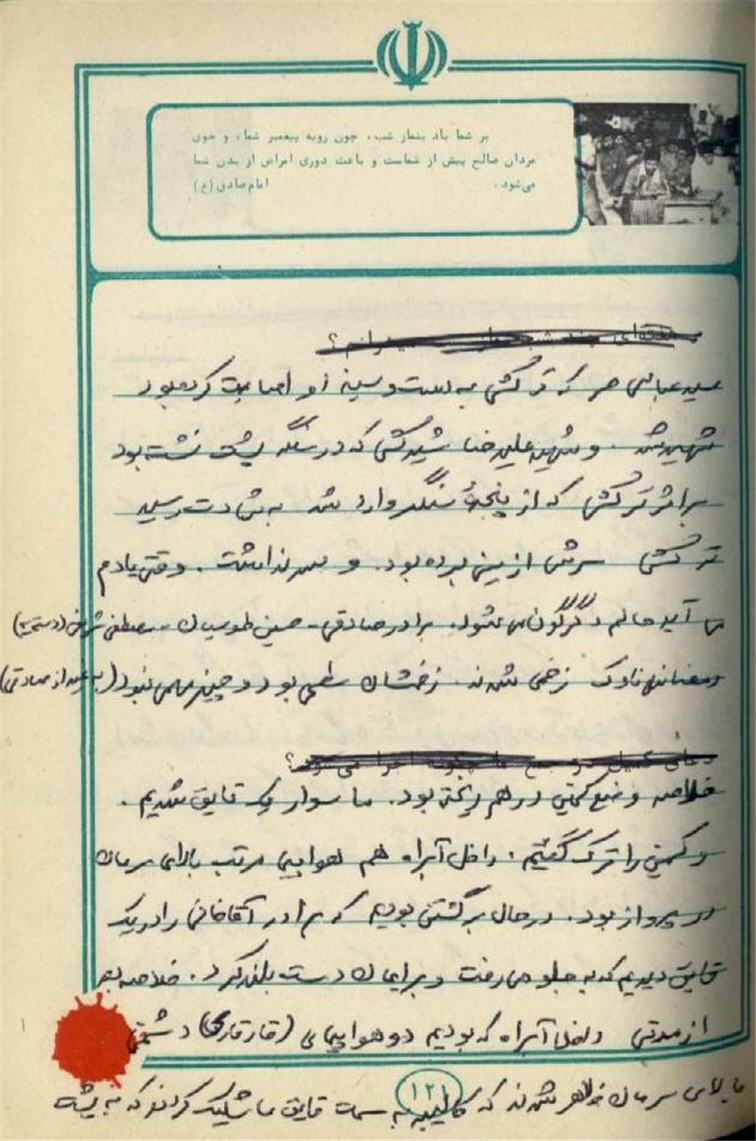 بر شما باد بنماز شب، چون رویه پیغمبر شما، و خوی
مردان صالح پیش از شماست و باعث دوری امراض از بدن شما
می‌شود. امام صادق (ع)
سید عباس هم که ترکشی به دست و سینه او اصابت کرده بود
شهید شد. و شهید علیرضا شیدکشی که در سنگر پشت نشسته بود
بر اثر ترکشی که از پنجرهٔ سنگر وارد شد به شهادت رسید
ترکشی سرش از بین برده بود. و سر نداشت. وقتی یادم
می آید حالم دگرگون می شود. برادر صادقی - حسین طوسیان - مصطفی شریفی
رمضانعلی ناوک زخمی شدند. زخمشان سطحی بود و چیز مهمی نبود (به غیر از صادقی)
خلاصه وضع کمین در هم ریخته بود. ما سوار یک قایق شدیم.
و کمین را ترک گفتیم. داخل آبراه هم هواپیما مرتب بالای سرمان
در پرواز بود. در حال برگشتن بودیم که برادر آقاخانی را در یک
قایق دیدیم که به جلو می رفت و برایمان دست بلند کرد. خلاصه بعد
از مدتی داخل آبراه که بودیم دو هواپیمای (قارقارکی) دشمن
بالای سرمان ظاهر شدند که کالیبر به سمت قایق ما شلیک کردند که به پشت
(۱۲۱)